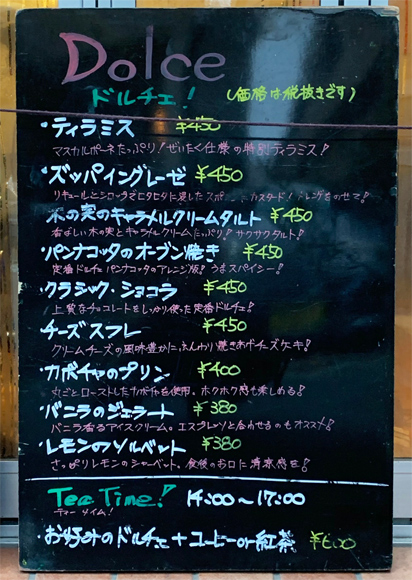 Dolce
ドルチェ!
(価格は税抜きです)
・ティラミス ¥450
マスカルポーネたっぷり!ぜいたく仕様の特別ティラミス!
・ズッパイングレーゼ ¥450
リキュールとシロップでヒタヒタに浸したスポンジにカスタード!オレンジをのせて!
・木の実のキャラメルクリームタルト ¥450
香ばしい木の実とキャラメルクリームたっぷり!サクサクタルト!
・パンナコッタのオーブン焼き ¥450
定番ドルチェパンナコッタのアレンジ版!うまスパイシー!
・クラシック・ショコラ ¥450
上質なチョコレートをしっかり使った定番ドルチェ!
・チーズスフレ ¥450
クリームチーズの風味豊かにふんわり焼きあげチーズケーキ!
・カボチャのプリン ¥400
丸ごとローストしたカボチャを使用。ホクホク感も楽しめる!
・バニラのジェラート ¥380
バニラ香るアイスクリーム。エスプレッソと合わせるのもオススメ!
・レモンのソルベット ¥380
さっぱりレモンのシャーベット。食後のお口に清涼感を!
Tea Time! 14:00〜17:00
ティータイム!
・お好みのドルチェ+コーヒーor紅茶 ¥600